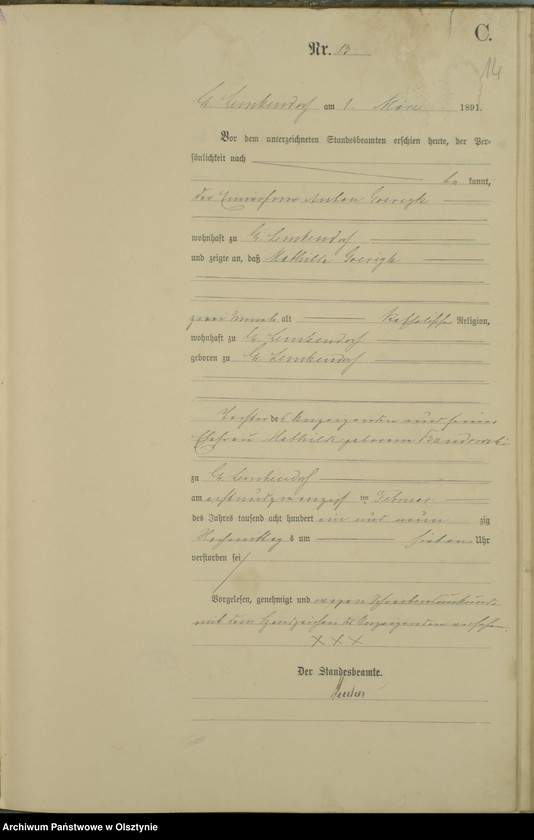 C.
14
Nr. 13
Gr. Lemkendorf am 1. März 1891.
Vor dem unterzeichneten Standesbeamten erschien heute, der Per-
sönlichkeit nach
be kannt,
der Anton Goerigk
wohnhaft zu Gr. Lemkendorf
und zeigte an, daß Mathilde Goerigk
zwei Monat alt katholischer Religion,
wohnhaft zu Gr. Lemkendorf
geboren zu Gr. Lemkendorf
Tochter des Anzeigenden und seiner
Ehefrau Mathilde geborenen
zu Gr. Lemkendorf
am achtundzwanzigsten Februar
des Jahres tausend acht hundert ein und neun zig
Nachmittags um sieben Uhr
verstorben sei
Vorgelesen, genehmigt und wegen Schreibensunkunde
mit dem Handzeichen des Anzeigenden versehen.
XXX
Der Standesbeamte.
Archiwum Państwowe w Olsztynie